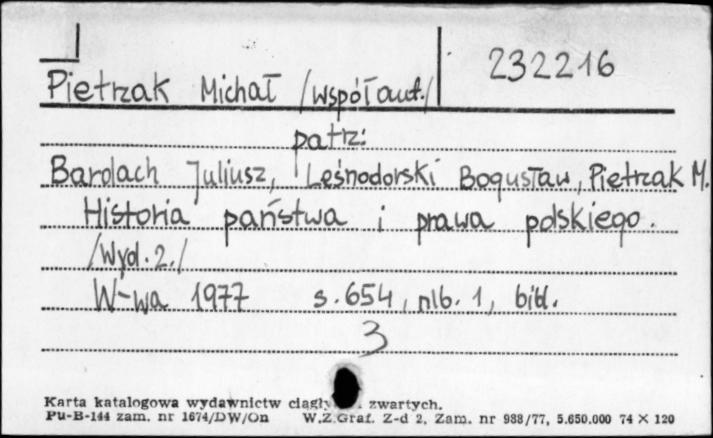 232216
Pietrzak Michał /współaut./
patrz:
Bardach Juliusz, Leśnodorski Bogusław, Pietrzak M.
Historia państwa i prawa polskiego.
/Wyd. 2./
W-wa 1977 s. 654, nlb. 1, bibl.
3
Karta katalogowa wydawnictw zwartych.
Pu-B-144 zam. nr 1674/DW/On W.Z.Graf. Z-d 2, Zam. nr 988/77, 5.650.000 74 X 120